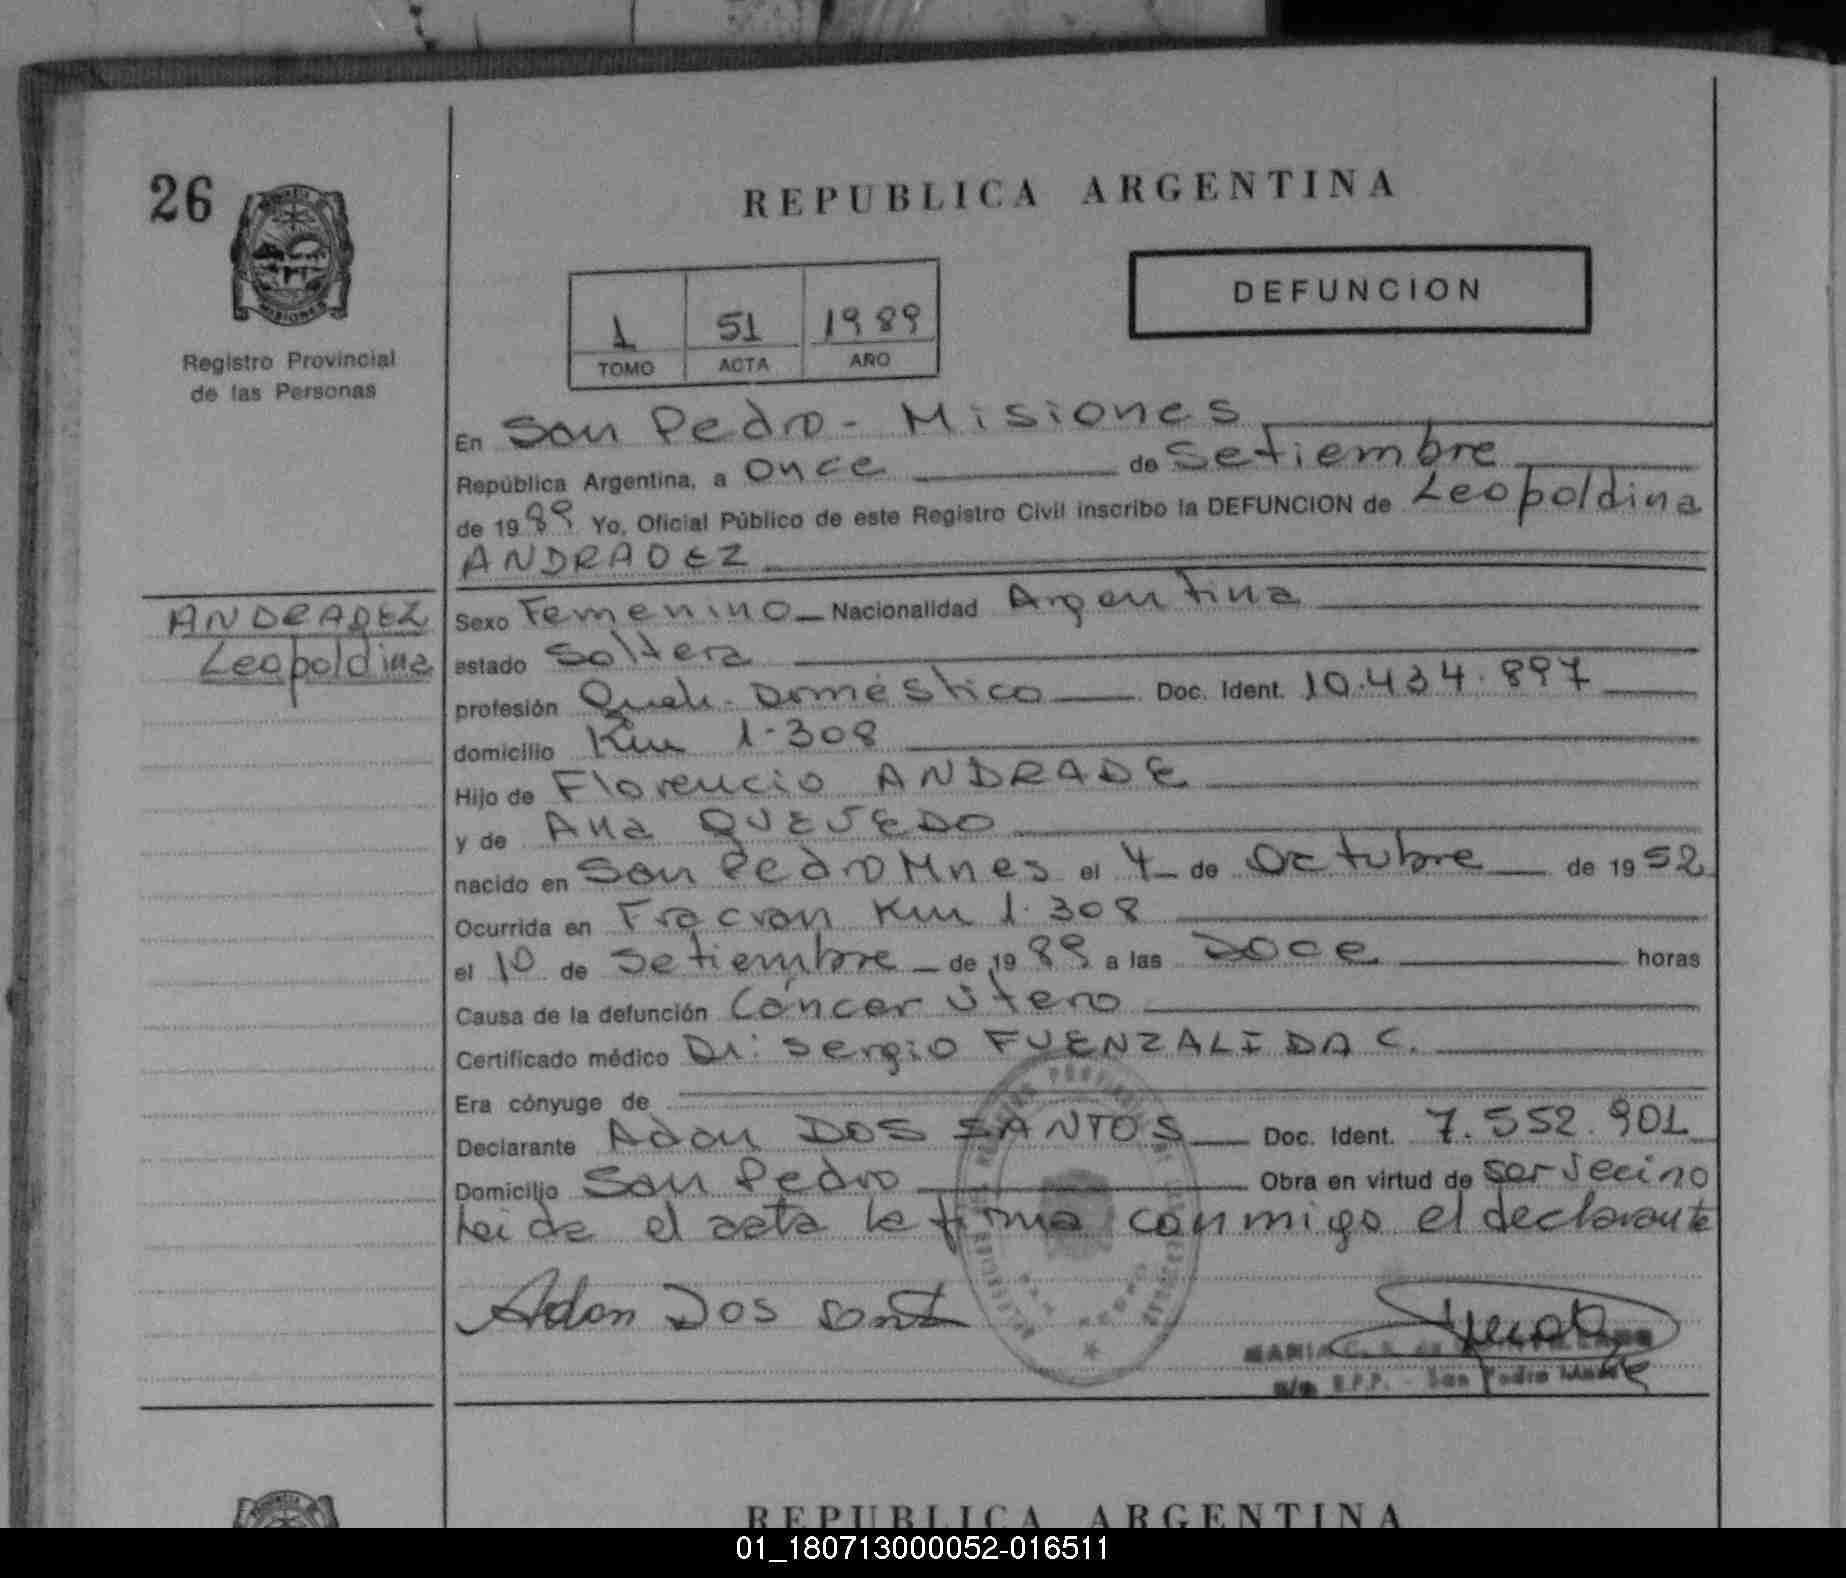 26
REPUBLICA ARGENTINA
DEFUNCION
1 51 1989
TOMO ACTA AÑO
MISIONES
Registro Provincial
de las Personas
En San Pedro - Misiones
República Argentina, a once de Setiembre
de 1989 Yo, Oficial Público de este Registro Civil inscribo la DEFUNCION de Leopoldina
ANDRADEZ
ANDRADEZ
Leopoldina
Sexo Femenino Nacionalidad Argentina
estado Soltera
profesión Queh. Doméstico Doc. Ident. 10.434.897
domicilio Km 1.308
Hijo de Florencio ANDRADE
y de Ana QUEVEDO
nacido en San Pedro Mnes el 4 de Octubre de 1952
Ocurrida en Fracran Km 1.308
el 10 de Setiembre de 1989 a las Doce horas
Causa de la defunción Cáncer útero
Certificado médico Dr. Sergio FUENZALIDA C.
Era cónyuge de
Declarante Adan DOS SANTOS Doc. Ident. 7.552.901
Domicilio San Pedro Obra en virtud de ser vecino
Leida el acta la firma conmigo el declarante
Adan Dos Sant
MARIA C.
R.P.P. - San Pedro
REPUBLICA ARGENTINA
01_180713000052-016511